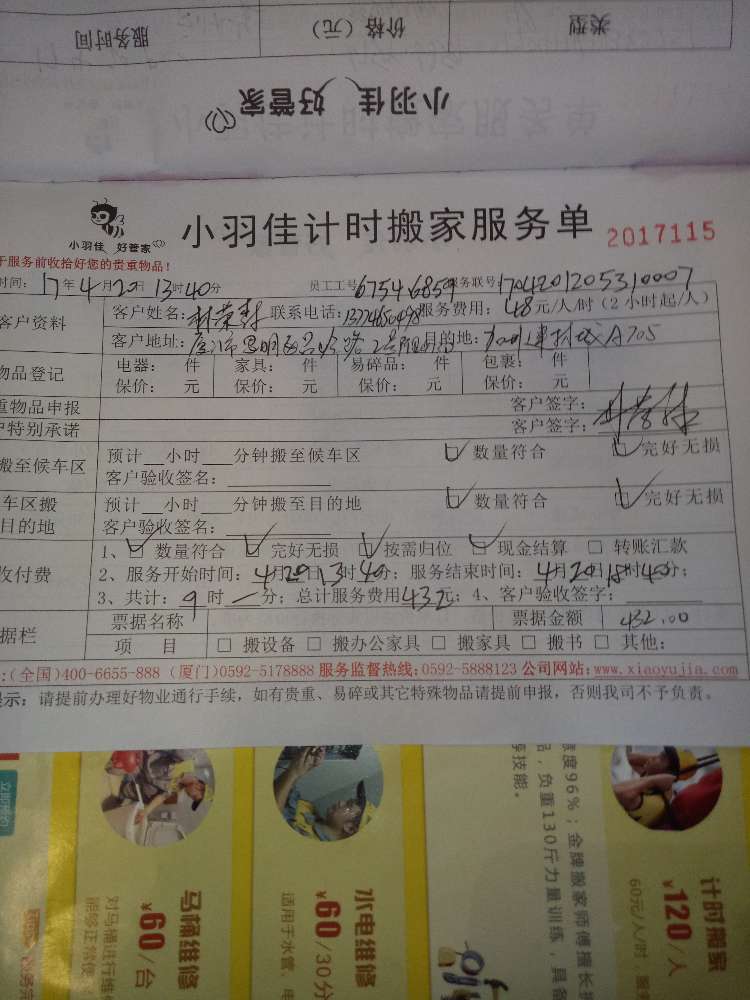 类型 价格（元） 服务时间
小羽佳 好管家
小羽佳 好管家
小羽佳计时搬家服务单 2017115
于服务前收拾好您的贵重物品！
时间：17年4月20日13时40分 员工工号67546859服务联号1704201205310007
客户资料
客户姓名： 联系电话： 服务费用：48元/人/时（2小时起/人）
客户地址： 目的地： A705
物品登记
电器： 件 家具： 件 易碎品： 件 包裹： 件
保价： 元 保价： 元 保价： 元 保价： 元
重物品申报 客户签字：
户特别承诺 客户签字：
搬至候车区
预计__小时___分钟搬至候车区 数量符合 完好无损
客户验收签名：
车区搬
目的地
预计__小时___分钟搬至目的地 数量符合 完好无损
客户验收签名：
收付费
1、 数量符合 完好无损 按需归位 现金结算 □ 转账汇款
2、服务开始时间：4月20日13时40分；服务结束时间：4月20日18时40分；
3、共计：9时一分；总计服务费用432元；4、客户验收签字：
据栏
票据名称 票据金额 432.00
项 目 □ 搬设备 □ 搬办公家具 □ 搬家具 □ 搬书 □ 其他：
：(全国)400-6655-888 (厦门)0592-5178888 服务监督热线：0592-5888123 公司网站：www.xiaoyujia.com
示：请提前办理好物业通行手续，如有贵重、易碎或其它特殊物品请提前申报，否则我司不予负责。
计时搬家
¥120/人
60元/人/时，
度96%；金牌搬家师傅擅长
品，负重130斤力量训练，具备
享技能。
水电维修
¥60/30分
适用于水管、电
马桶维修
¥60/台
对马桶进行维
能够正常使
立即预约